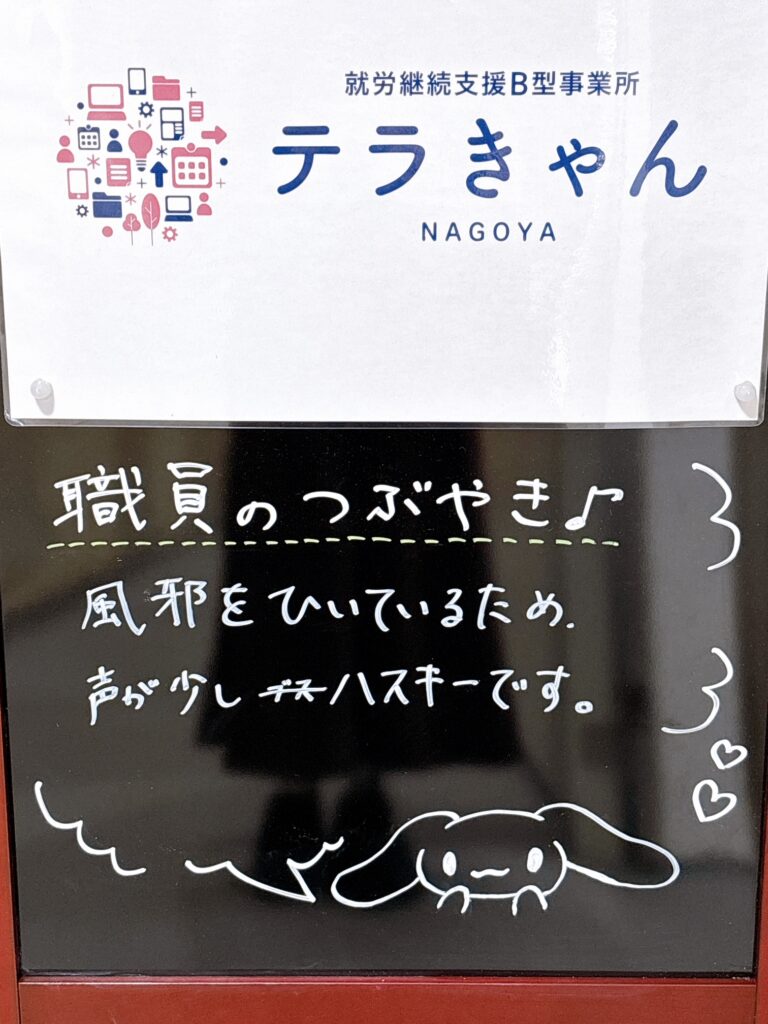 就労継続支援B型事業所
テラきゃん
NAGOYA
職員のつぶやき♪
風邪をひいているため、
声が少しデスハスキーです。